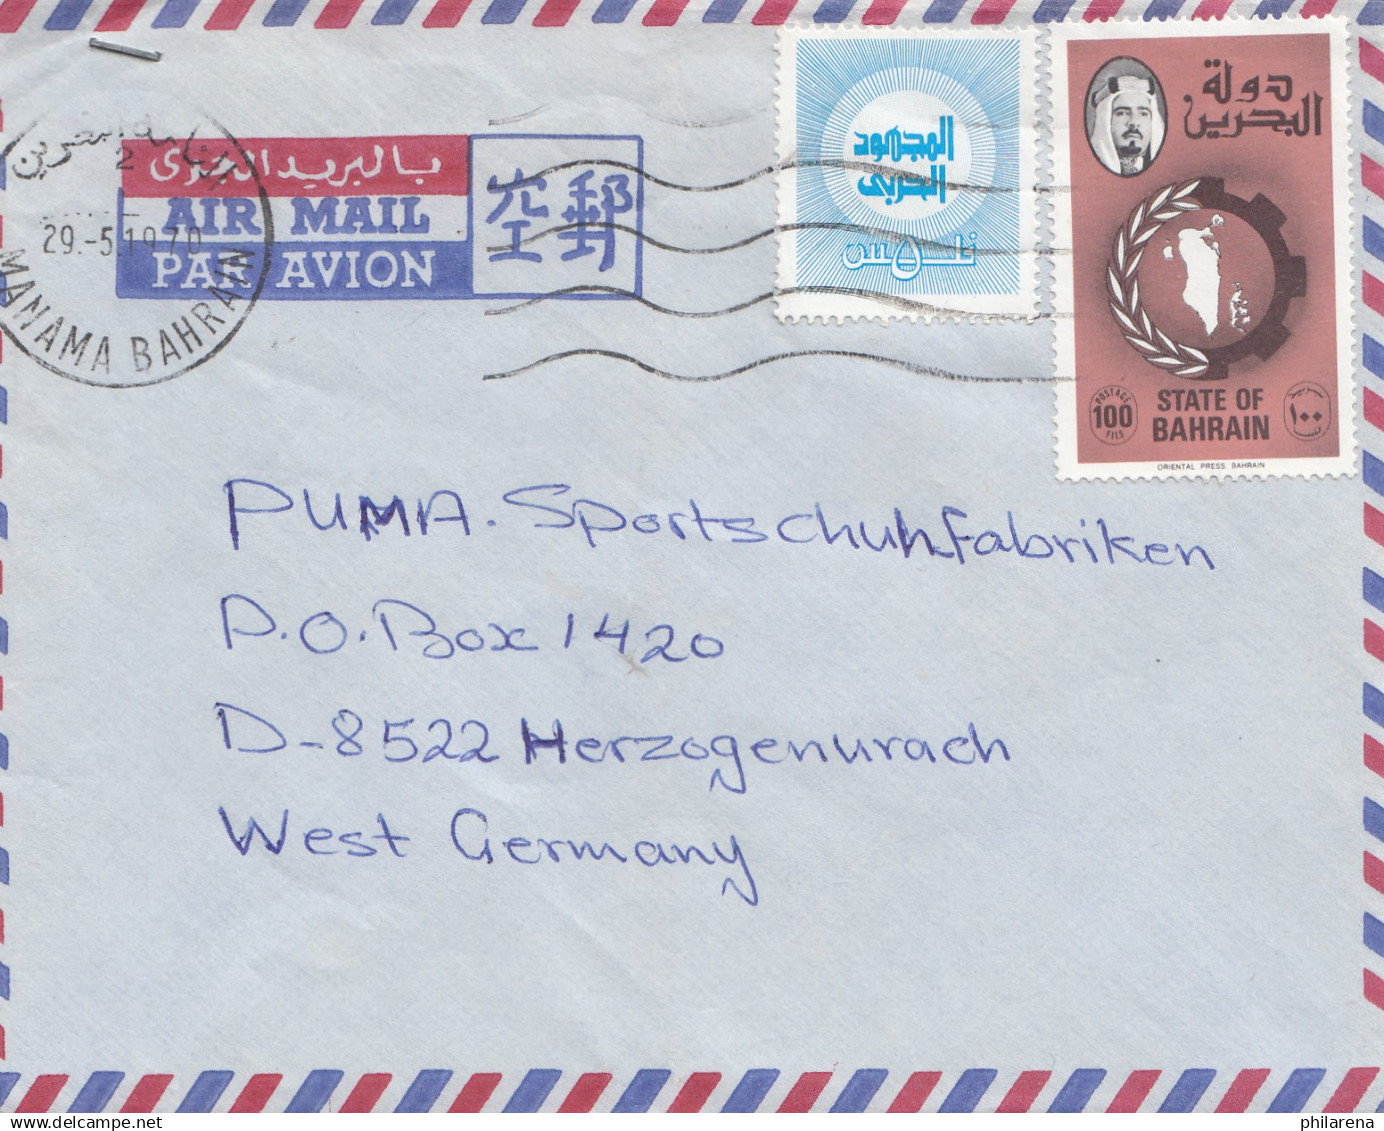 المجهود
الحربي
فلس ٥ س
دولة
البحرين
بالبريد الجوى
AIR MAIL
PAR AVION
空郵
2
29.-5.1970
MANAMA BAHRAIN
POSTAGE
100
FILS
STATE OF
BAHRAIN
١٠٠
ORIENTAL PRESS, BAHRAIN
PUMA. Sportschuhfabriken
P.O. Box 1420
D-8522 Herzogenurach
West Germany
philarena